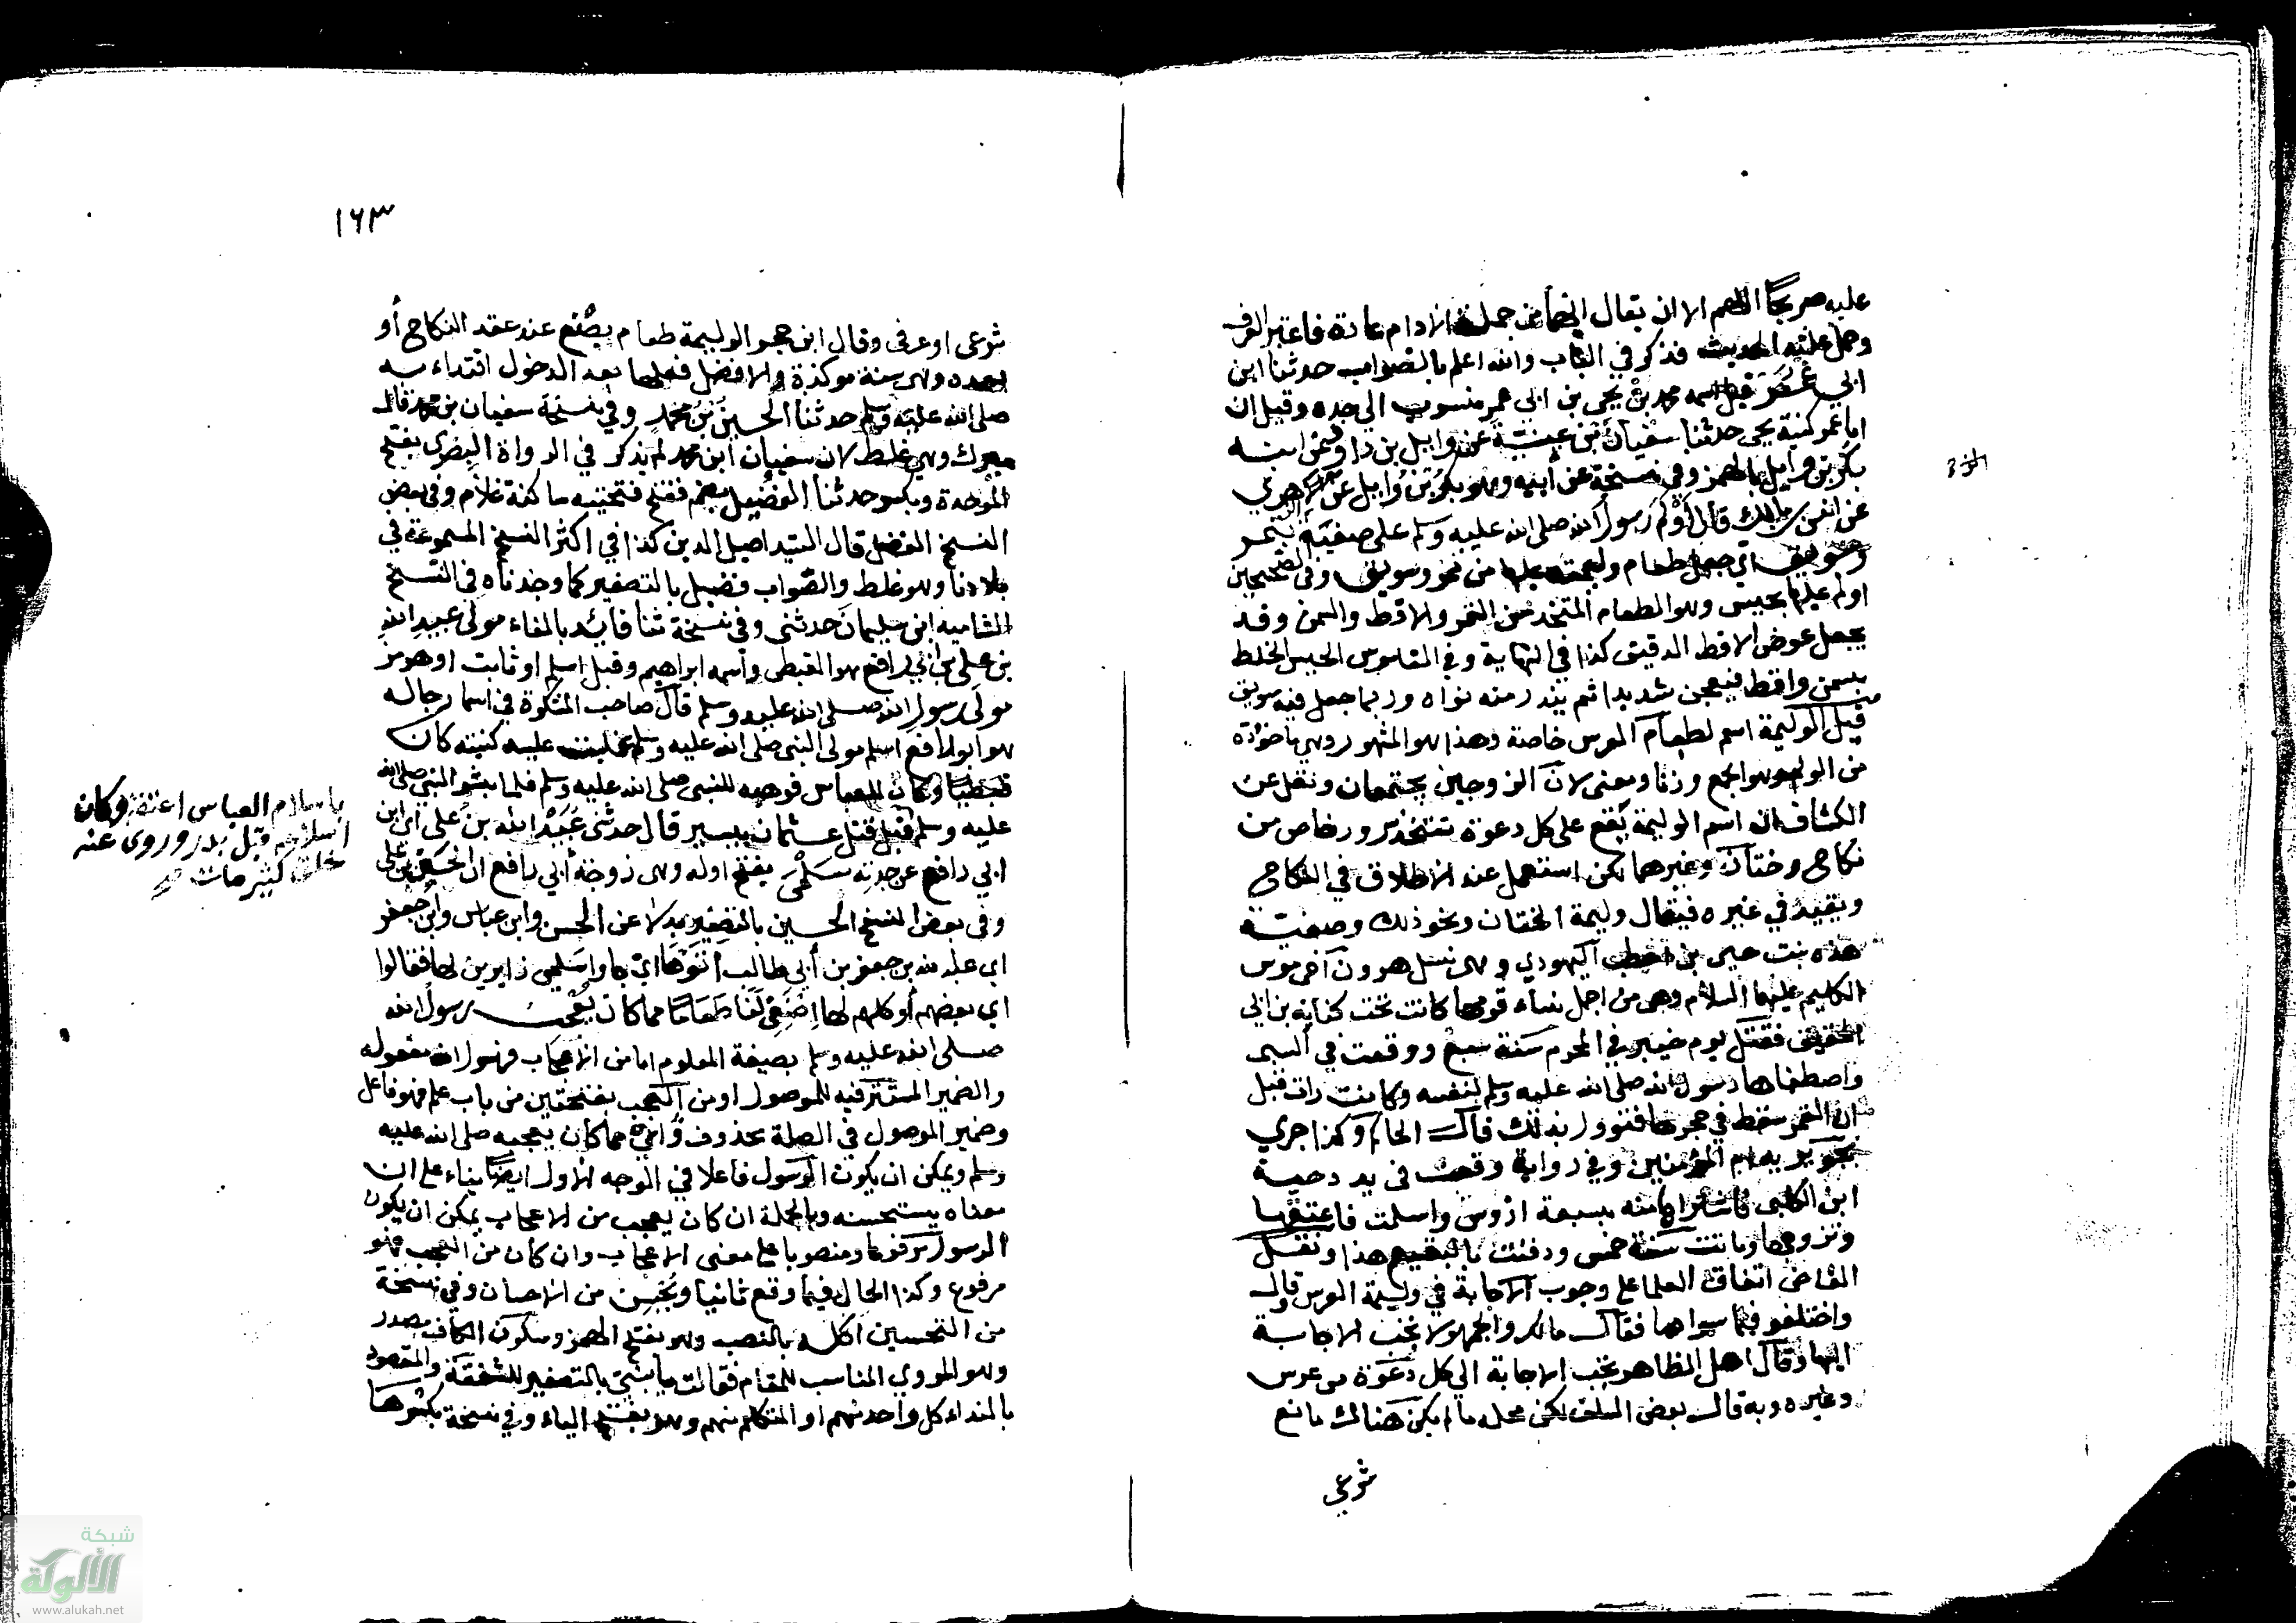 عليه صريحا اللهم الا ان يقال انهما من جملة الادام عادة فاعتبر العرف
وحمل عليه الحديث فذكر في الباب والله اعلم بالصواب حدثنا ابن
ابي عمر قيل اسمه محمد بن يحيى بن ابي عمر منسوب الى جده وقيل ان
ابا عمر كنية يحيى حدثنا سفيان بن عيينة عن وايل بن داود عن ابنه
بكر بن وايل بالهمز وفي نسخة عن أبيه وهو بكر بن وايل عن الزهري
الزهري
عن انس بن مالك قال أولم رسول الله صلى الله عليه وسلم على صفية بتمر
وسويق اي جعل طعام وليمته عليها من تمر وسويق وفي الصحيحين
اولم عليها بحيس وهو الطعام المتخذ من التمر والاقط والسمن وقد
يجعل عوض الاقط الدقيق كذا في النهاية وفي القاموس الحيس الخلط
بسمن واقط فيعجن شديدا ثم يندر منه نواه وربما جعل فيه سويق
قيل الوليمة اسم لطعام العرس خاصة وهذا هو المشهور وهي ماخوذة
من الولم وهو الجمع وزنا ومعنى لان الزوجين يجتمعان ونقل عن
الكشاف ان اسم الوليمة يقع على كل دعوة تتخذ لسرور خاص من
نكاح وختان وغيرهما لكن استعمل عند الاطلاق في النكاح
ويقيد في غيره فيقال وليمة الختان ونحو ذلك وصفية
هذه بنت حيي بن اخطب اليهودي وهي نسل هرون آخي موسى
الكليم عليهما السلام وهي من اجمل نساء قومها كانت تحت كنانة بن ابي
الحقيق فقتل يوم خيبر في المحرم سنة سبع ووقعت في السبي
واصطفاها رسول الله صلى الله عليه وسلم لنفسه وكانت رات قبل
ان القمر سقط في حجرها فتوول بذلك قال الحاكم وكذا جرى
بجويريه ام المؤمنين وفي رواية وقعت في يد دحية
ابن الكلبي فاشتراها منه بسبعة ارؤس واسلمت فاعتقها
وتزوجها وماتت سنة خمس ودفنت بالبقيع هذا ونقل
القاضي اتفاق العلما على وجوب الاجابة في وليمة العرس قال
واختلفوا فيما سواها فقال مالك والجمهور لا تجب الاجابة
اليها وقال اهل الظاهر تجب الاجابة الى كل دعوة من عرس
وغيره وبه قال بعض السلف لكن محله ما لم يكن هناك مانع
شرعي
١٦٣
شرعى او عرفى وقال ابن حجر الوليمة طعام يصنع عند عقد النكاح أو
بعده وهي سنة موكدة والافضل فعلها بعد الدخول اقتداء به
صلى الله عليه وسلم حدثنا الحسين بن محمد وفي نسخة سفيان بن محمد قال
ميرك وهي غلط لان سفيان ابن محمد لم يذكر في الرواة البصري بفتح
الموحدة وبكسر حدثنا الفضيل بضم ففتح فتحتيه ساكنة فلام وفي بعض
النسخ الفضل قال السيد اصيل الدين كذا في اكثر النسخ المسموعة في
بلادنا وهو غلط والصواب فضيل بالتصغير كما وجدناه في النسخ
الشاميه ابن سليمان حدثنى وفي نسخة ثنا فائد بالفاء مولى عبيد الله
بن على بن ابي رافع هو القبطى واسمه ابراهيم وقيل اسلم او ثابت او هرمز
مولى رسول الله صلى الله عليه وسلم قال صاحب المشكوة في اسما رجاله
هو ابو رافع اسلم مولى النبى صلى الله عليه وسلم غلبت عليه كنيته كان
قبطيا وكان للعباس فوهبه للنبي صلى الله عليه وسلم فلما بشر النبي صلى الله
عليه وسلم
باسلام العباس اعتقه وكان
اسلامه قبل بدر وروى عنه
خلق كثير مات
قبل قتل عثمان بيسير قال حدثنى عبيد الله بن على اى ابن
ابي رافع عن جدته سلمى بفتح اوله وهي زوجة أبي رافع ان الحسن بن على
وفي بعض النسخ الحسين بالتصغير بدلا عن الحسن وابن عباس وابن جعفر
اى عبد الله بن جعفر بن أبي طالب أتوها اي جاوا سلمى زايرين لها فقالوا
اى بعضهم أو كلهم لها اصنعى لنا طعاما مما كان يعجب رسول الله
صلى الله عليه وسلم بصيغة المعلوم اما من الاعجاب فرسول الله مفعوله
والضمير المستتر فيه للموصول او من العجب بفتحتين من باب علم فهو فاعل
وضمير الموصول في الصلة محذوف أي مما كان يعجبه صلى الله عليه
وسلم ويمكن ان يكون الرسول فاعلا في الوجه الاول ايضا بناء على ان
معناه يستحسنه وبالجملة ان كان يعجب من الاعجاب يمكن ان يكون
الرسول مرفوعا ومنصوبا على معنى الاعجاب وان كان من العجب فهو
مرفوع وكذا الحال فيما وقع ثانيا ويحسن من الاحسان وفي نسخة
من التحسين اكله بالنصب وهو بفتح الهمز وسكون الكاف مصدر
وهو المروي المناسب للمقام فقالت يا بني بالتصغير للشفقة والمقصود
بالنداء كل واحد منهم او المتكلم منهم وهو بفتح الياء وفي نسخة بكسرها
شبكة
الألوكة
www.alukah.net